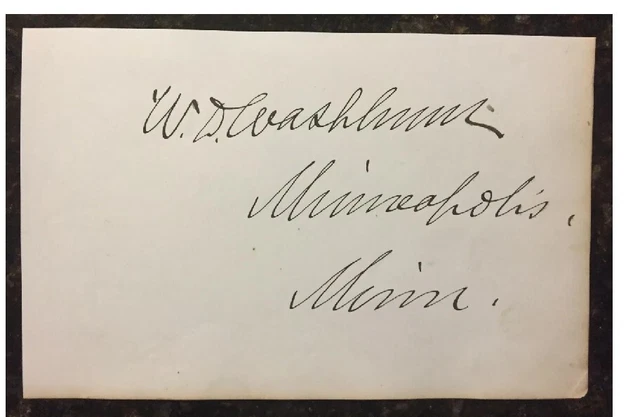 W. D. Washburn
Minneapolis,
Minn.